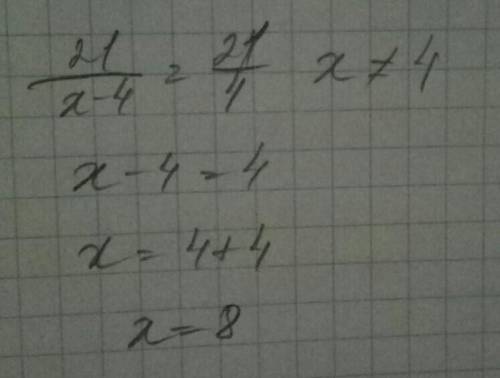 21/(x-4) = 21/4 x ≠ 4
x - 4 = 4
x = 4+4
x = 8